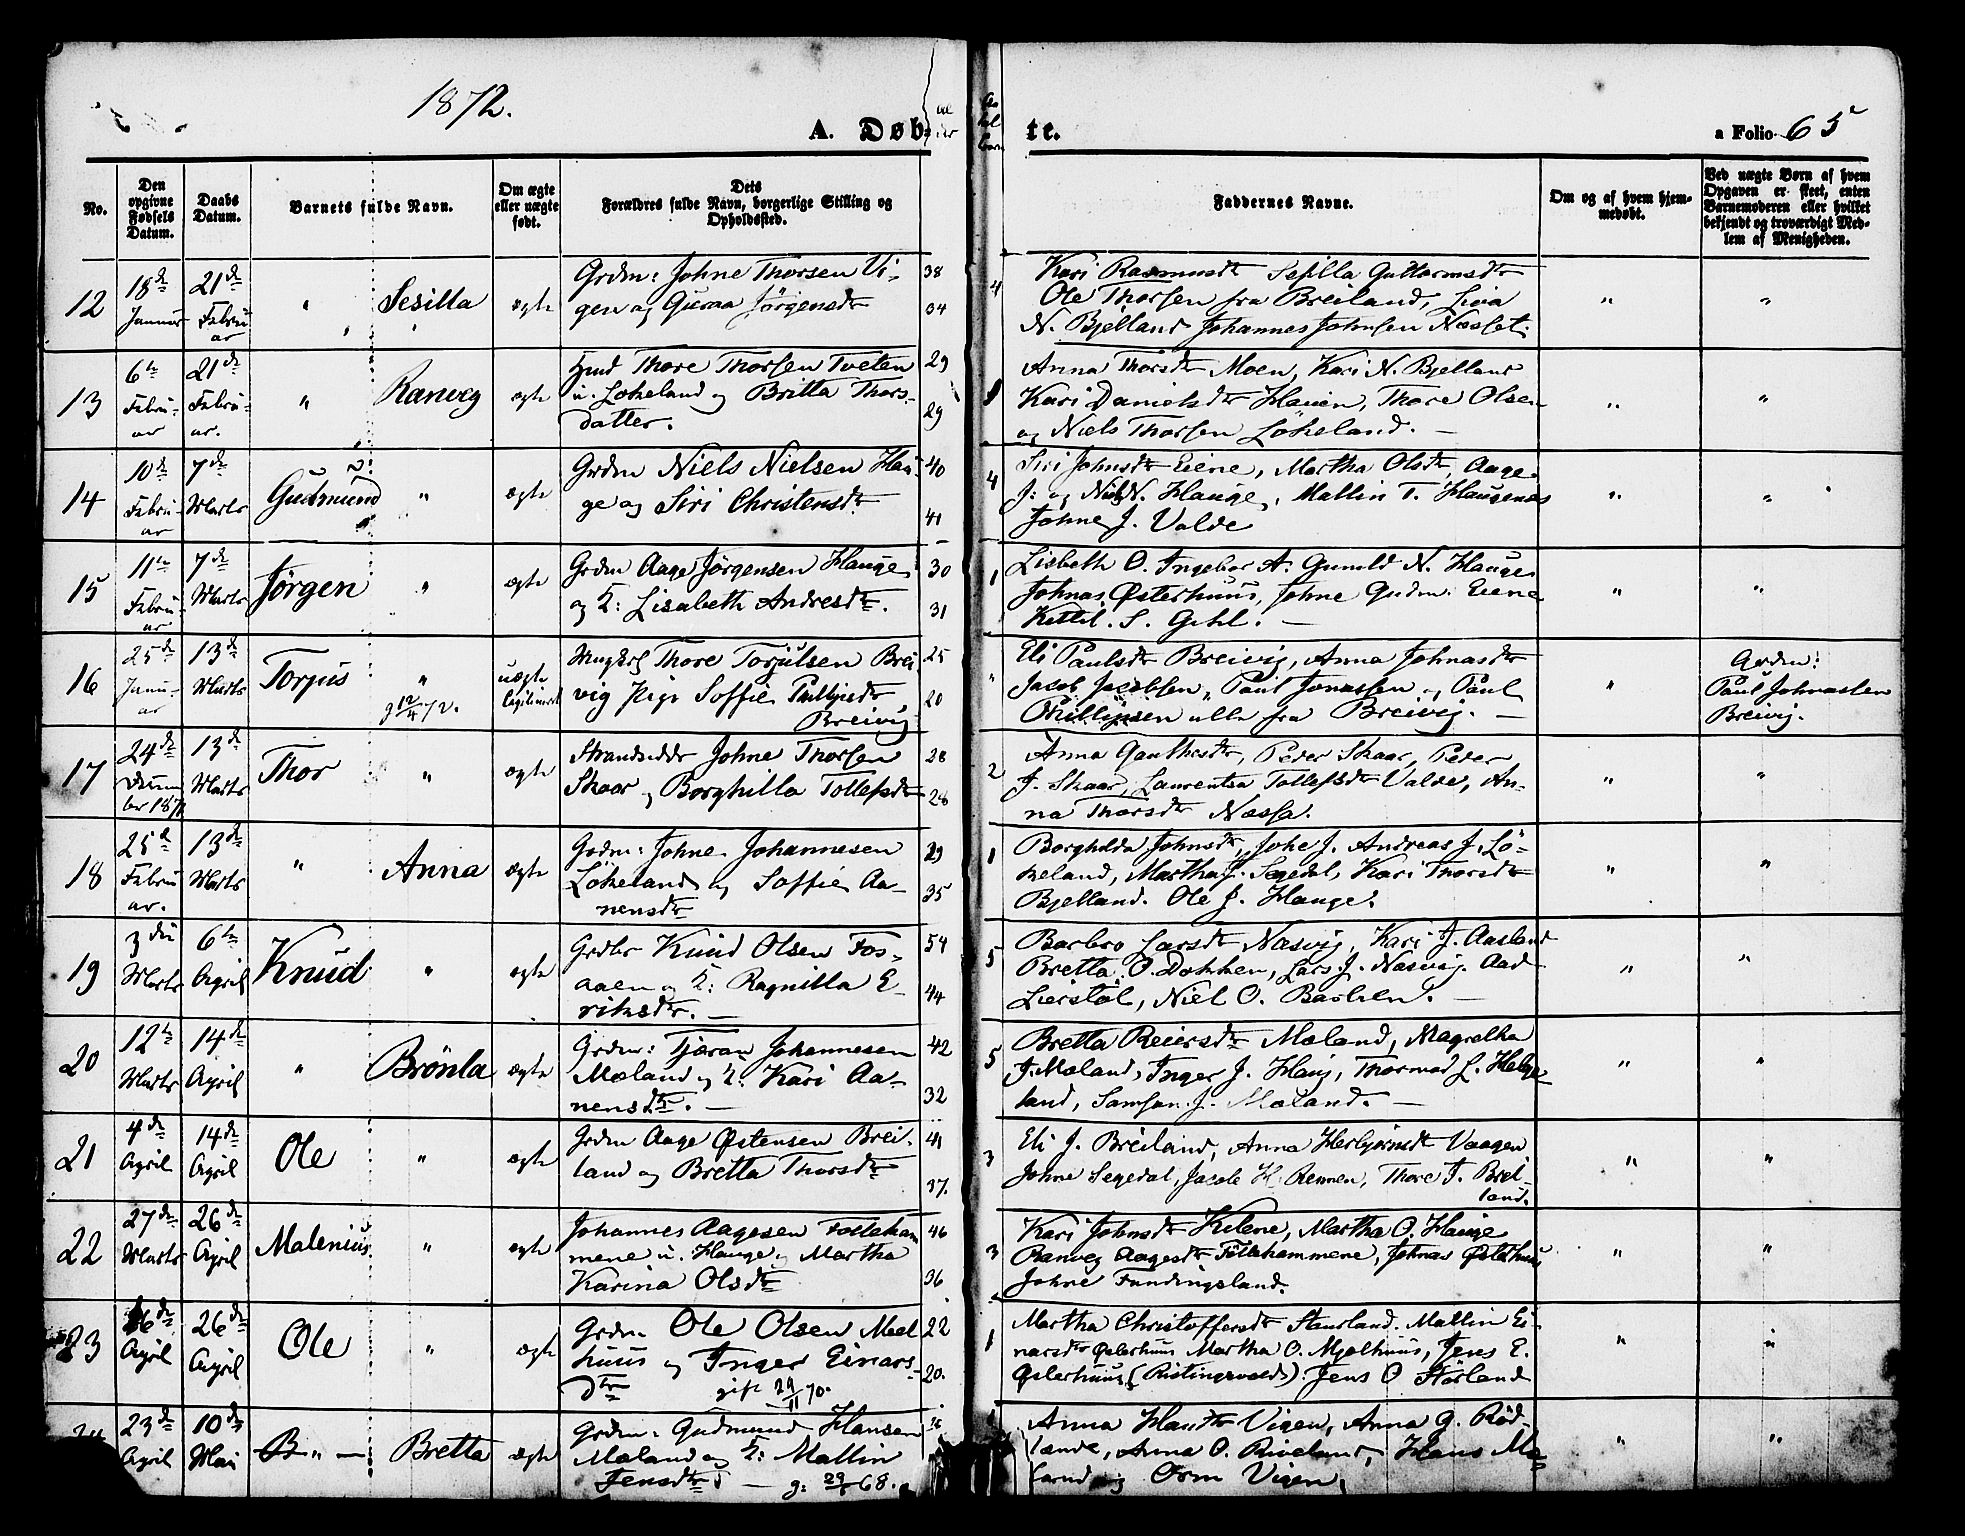 1872.
A. Døb-
te.
a Folio 65
No.
Den opgivne Fødsels Datum.
Daabs Datum.
Barnets fulde Navn.
Om ægte eller uægte født.
Dets Forældres fulde Navn, borgerlige Stilling og Opholdssted.
Faddernes Navne.
Om og af hvem hjemmedøbt.
Ved uægte Børn af hvem Opgaven er skeet, enten Barnemoderen eller hvilket bekjendt og troværdigt Medlem af Menigheden.
12 18de Januar 21de Februar " Sesilla ægte
Grdm: Johne Thorsen Vi- 38
gen og Guroa Jørgensdtr 34
4 Kari Rasmusdtr Sesilla Guttormsdtr
Ole Thorsen fra Breiland, Siva
N. Bjelland Johannes Johnsen Næsset. " "
13 6te Februar 21de Februar. " Ranveg ægte
Hmd Thore Thorsen Tveten 29
u. Løkeland og Britta Thors- 29
datter.
Anna Thorsdtr Moen, Kari N. Bjelland
Kari Danielsdtr Hauen, Thore Olsen
og Niels Thorsen Løkeland. — " "
14 10de Februar 7de Marts Gudmund " ægte
Grdm Niels Nielsen Hau- 40
ge og Siri Christensdtr 41
4 Siri Johnsdtr Eiene, Martha Olsdtr, Aage
J: og Niels N. Hauge, Mallin T. Haugenæs
Johne J. Valde " "
15 11te Februar 7de Marts Jørgen " ægte
Grdm Aage Jørgensen Hauge 30
og K: Lisabeth Andresdtr. 31
1 Lisbeth O. Ingebor A. Gunild N. Hauge
Johnas Østerhuus, Johne Gudm: Eiene
Kettil. S. Gehl. — " "
16 25de Januar 13de Marts Torjus " g 12/4 72. uægte Legitimert
Ungkrl Thore Torjulsen Brei 25
vig Pige Soffie Paulsdtr 20
Breivig
" Eli Paulsdtr Breivig, Anna Johnasdtr
Jacob Jacobsen, Paul Jonassen og Paul
Phillipsen alle fra Breivig. — "
Grdm: Paul Johnassen Breivig.
17 24de December 1871 13de Marts Thor " ægte
Strandsidder Johne Thorsen 28
Skaar og Borghilla Tollefsdtr 28
2 Anna Gauthesdtr, Peder Skaar, Peder
J. Skaar, Laurentsa Tollefsdtr Valde, An-
na Thorsdtr Næssa. " "
18 25de Februar. 13de Marts " Anna ægte
Grdm: Johne Johannesen 29
Løkeland og Soffie Aa- 35
nensdtr
1 Borghilda Johnsdtr, Johe J. Andreas J. Lø-
keland, Martha J. Segedal, Kari Thorsdtr
Bjelland. Ole J. Hauge. " "
19 3die Marts 6te April Knud " ægte
Grdbr Knud Olsen Fos- 54
aaen og K: Ragnilla E- 44
riksdtr. —
5 Barbro Larsdtr Næsvig, Kari J. Aasland
Bretta O. Dokken, Lars J. Næsvig. Aad-
Lierstøl, Niel O. Bakken. — " "
20 12te Marts 14de April " Brönla ægte
Grdm: Tjæran Johannesen 42
Mæland og K: Kari Aa- 32
nensdtr. —
5 Bretta Reiersdtr Mæland, Magretha
J. Mæland, Inger J. Haug, Thormod L. Helge-
land, Samson J. Mæland. — " "
21 4de April 14de April Ole " ægte
Grdm Aage Østensen Brei- 41
land og Bretta Thorsdtr 37.
3 Eli J. Breiland, Anna Herbjørnsdtr Vaagen
Johne Segedal, Jacob H. Remen, Thore T. Brei-
land. " "
22 27de Marts 26de April Malenius " ægte
Johannes Aagesen Følleham 46
mene u. Hauge og Martha
Karina Olsdtr 36
3 Kari Johnsdtr Kilene, Martha O. Hauge
Ranveg Aagesdtr Føllehammene, Johnas Østerhuus
Johne Fundingsland. " "
23 16de April 26de April Ole " ægte
Grdm Ole Olsen Mæl 22
huus og Inger Einars- 20.
dtr gift 29/11 70.
1 Martha Christoffersdtr Haurland. Mallin Ei-
narsdtr Østerhuus Martha O. Mjølhuus, Jens E.
Østerhuus (Ristingsvold). Jens O Hørland " "
24 23de April 10de Mai B " — Bretta ægte
Grdm: Gudmund Hansen 36
Mæland og K: Mallin
Jensdtr — g: 29/ 68.
Anna Hansdtr Vigen, Anna G. Rød-
lande, Anna O. Riveland, Hans Mæ-
land og Orm Vigen. " "